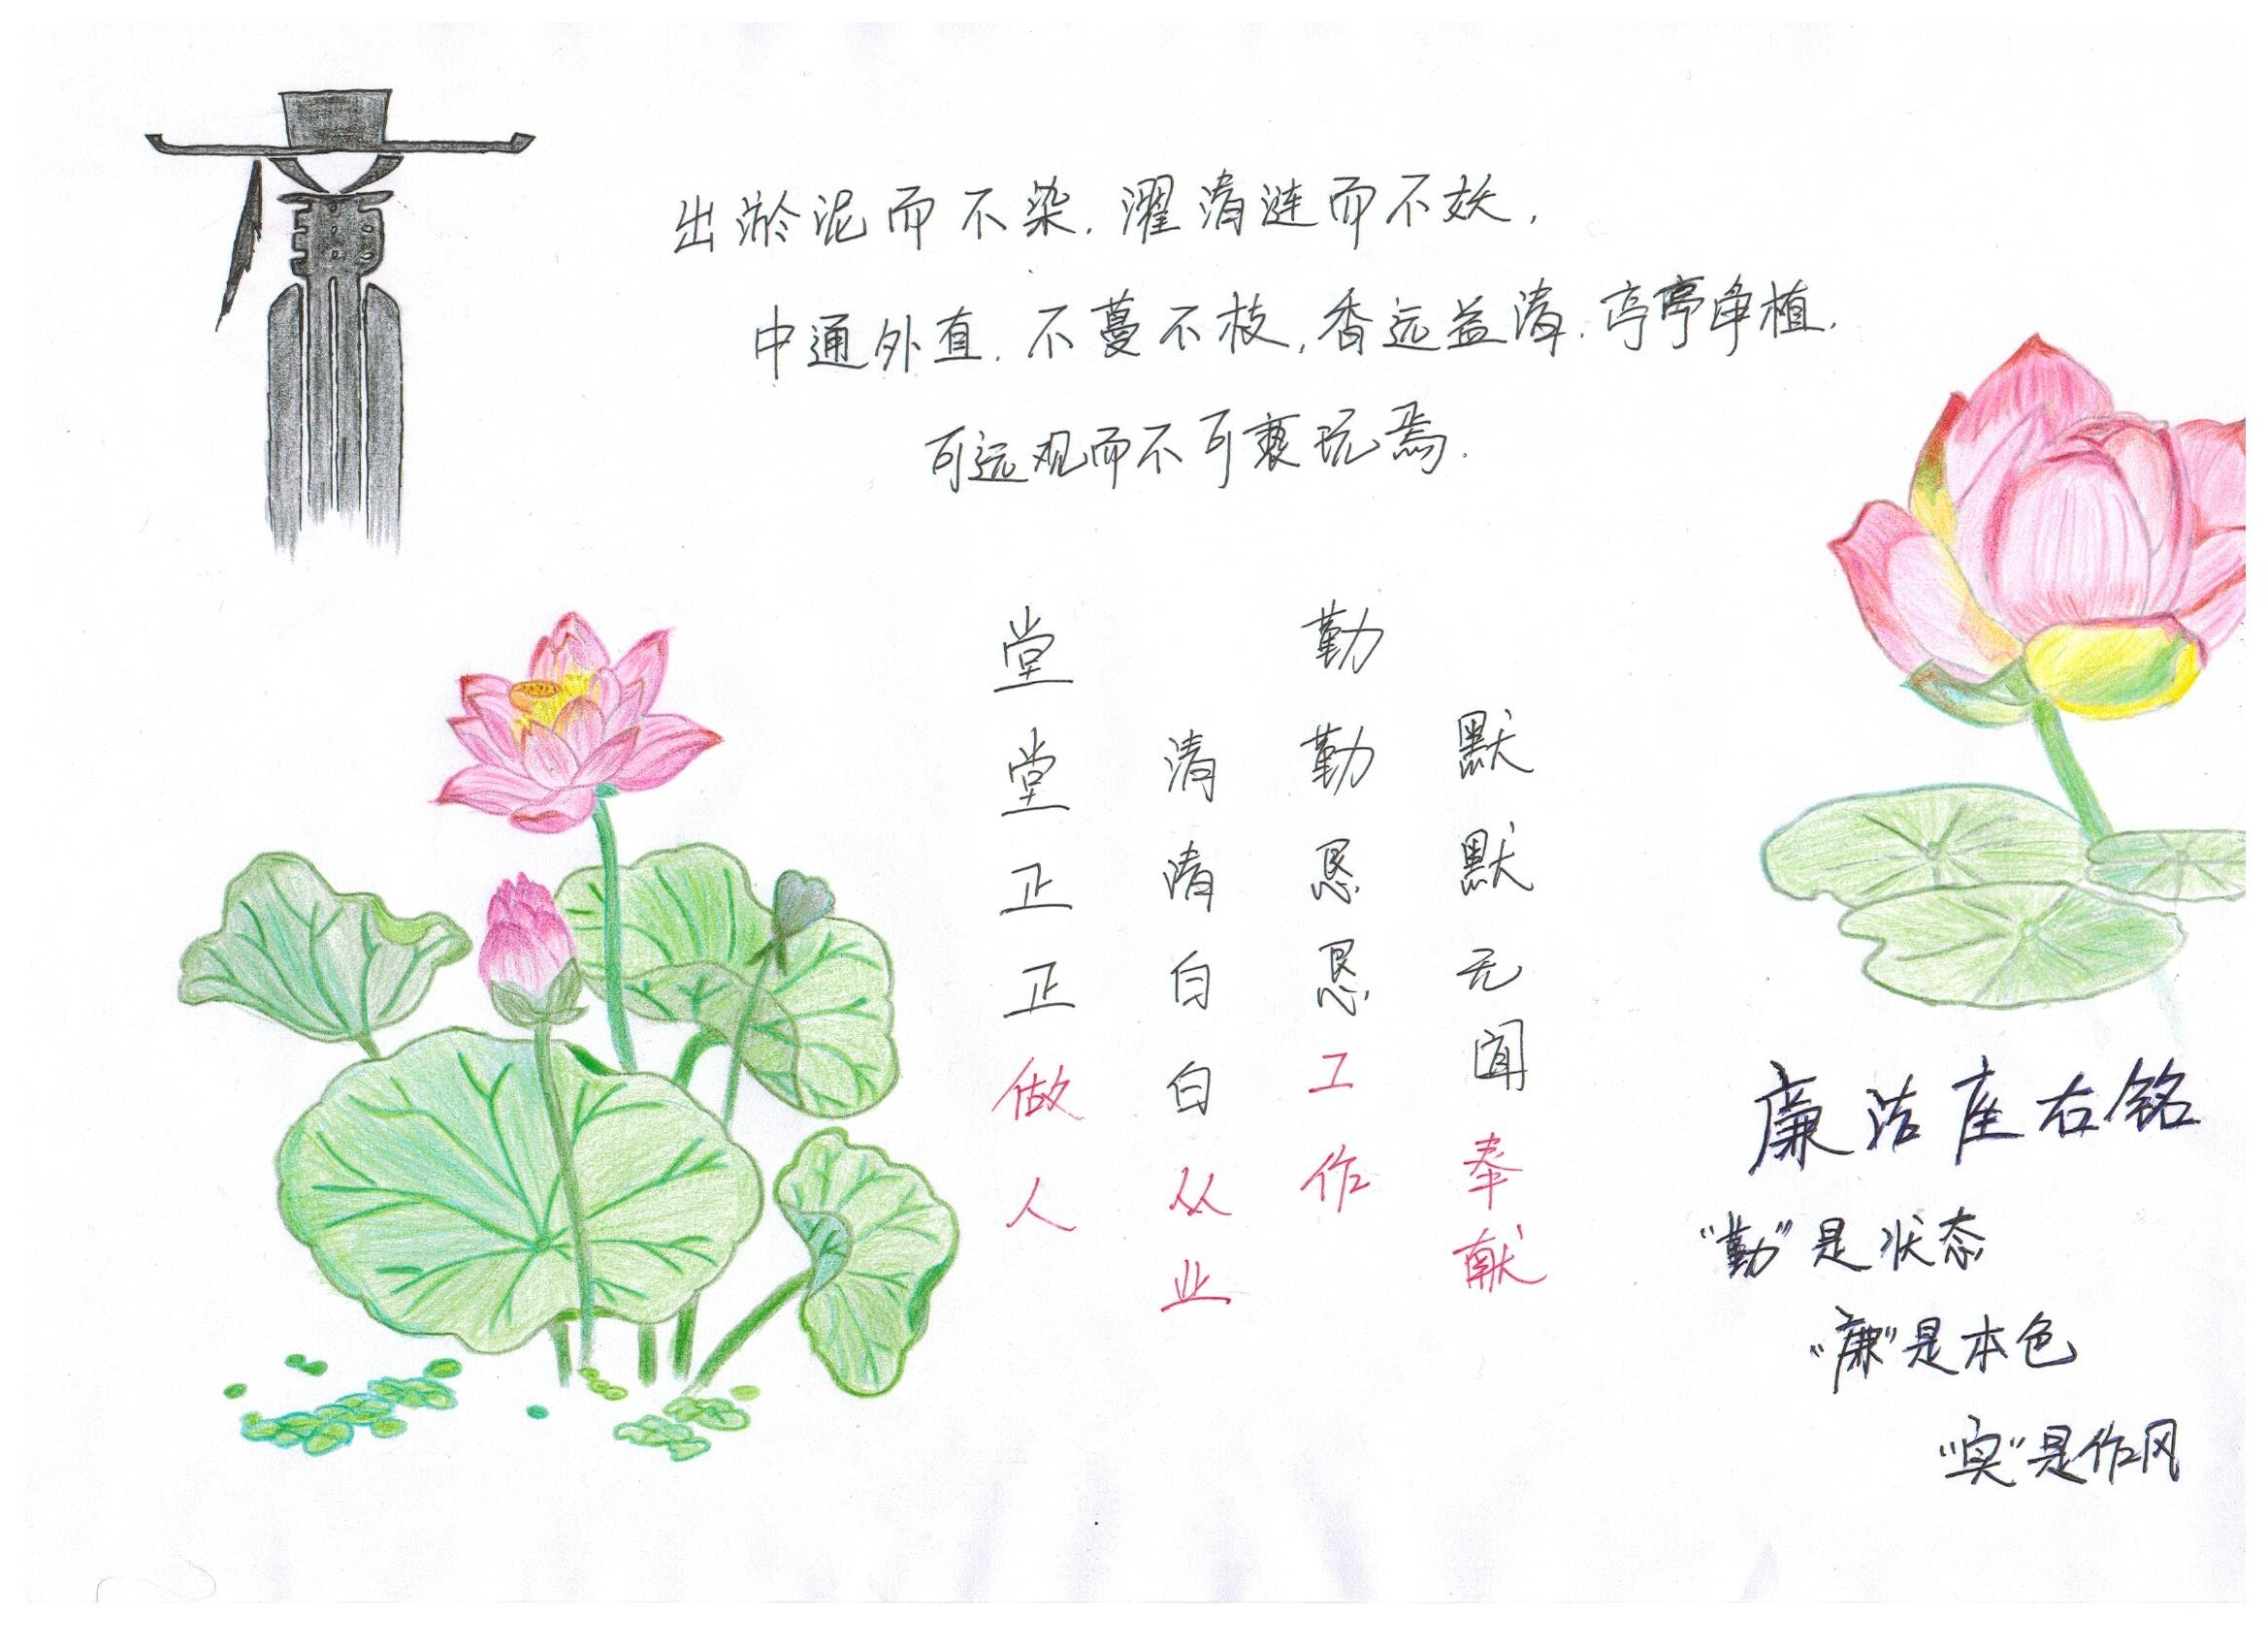 出淤泥而不染.濯清涟而不妖,
中通外直.不蔓不枝,香远益清.亭亭净植.
可远观而不可亵玩焉.
堂堂正正做人
清清白白从业
勤勤恳恳工作
默默无闻奉献
廉洁座右铭
“勤”是状态
“廉”是本色
“实”是作风